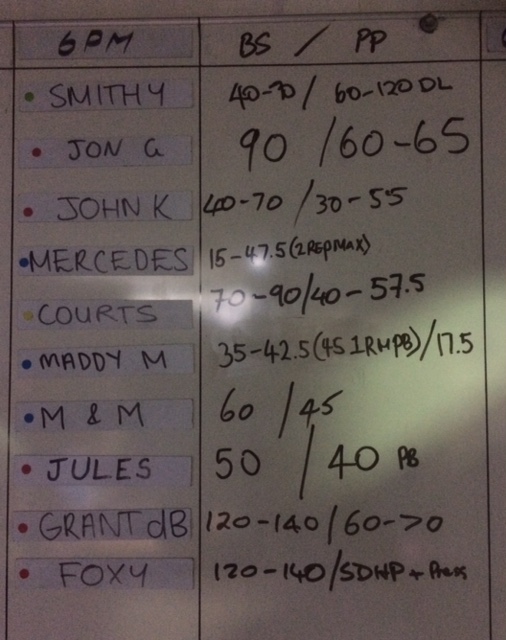 6PM BS / PP
SMITHY 40-70 / 60-120 DL
JON G 90 / 60-65
JOHN K 40-70 / 30-55
MERCEDES 15-47.5 (2 REP MAX)
COURTS 70-90/40-57.5
MADDY M 35-42.5 (45 1RM PB) / 17.5
M & M 60 / 45
JULES 50 / 40 PB
GRANT dB 120-140 / 60-70
FOXY 120-140 / SDHP + Press